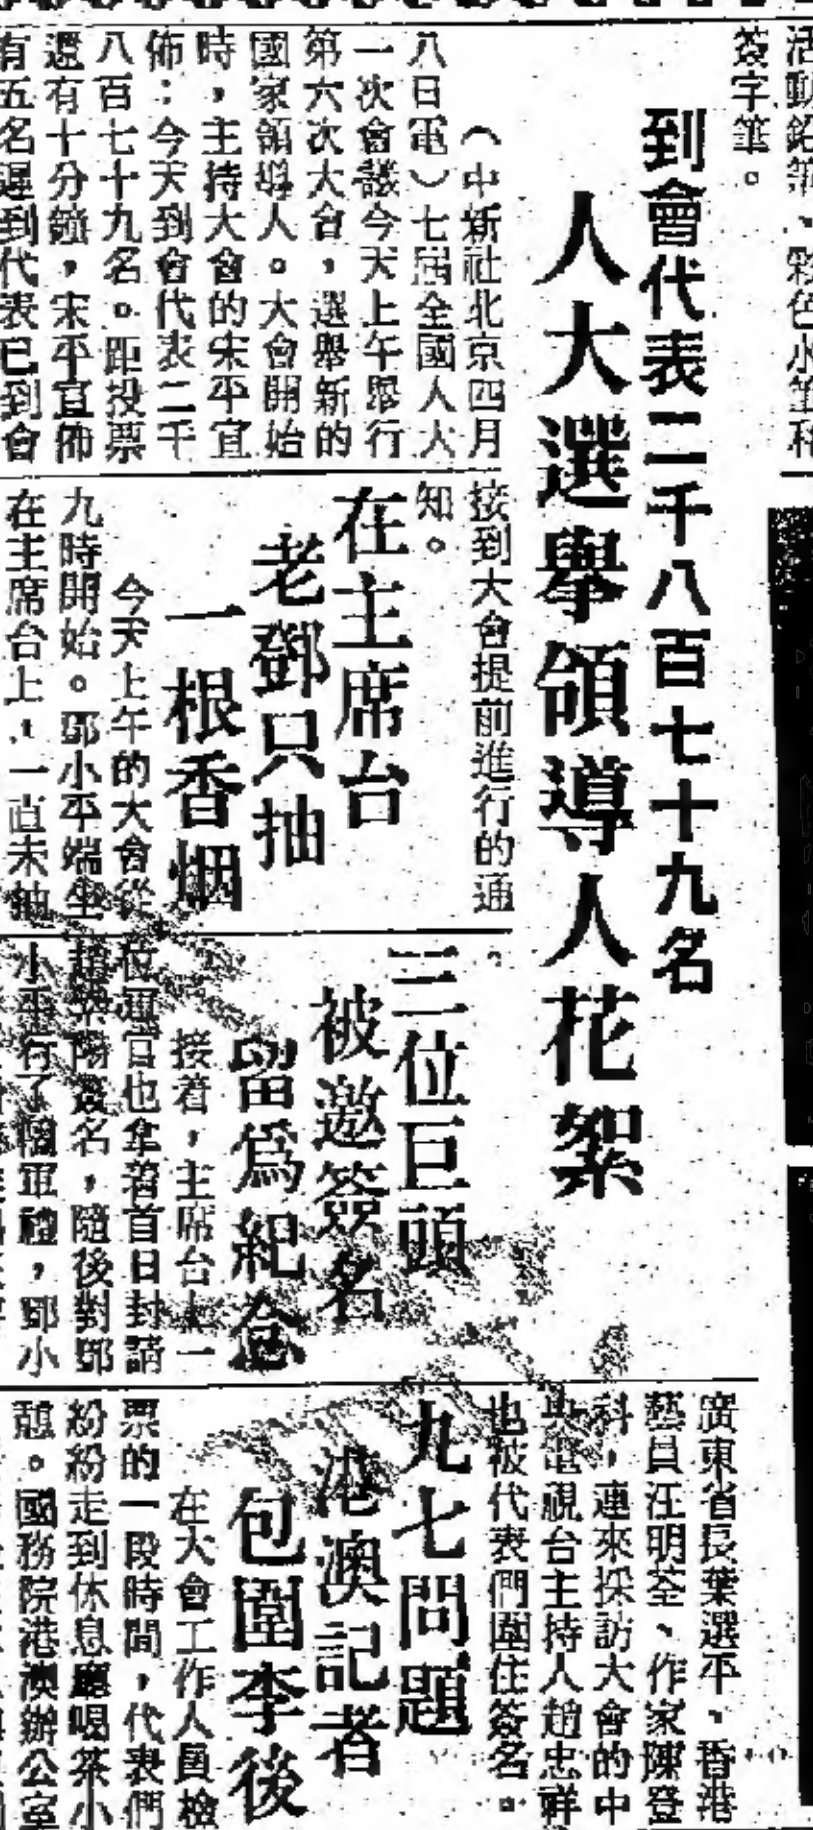 活動鉛筆、彩色水筆和
簽字筆。
到會代表二千八百七十九名
人大選舉領導人花絮
（中新社北京四月
八日電）七屆全國人大
一次會議今天上午舉行
第六次大會，選舉新的
國家領導人。大會開始
時，主持大會的宋平宣
佈：今天到會代表二千
八百七十九名。距投票
還有十分鐘，宋平宣佈
有五名遲到代表已到會
接到大會提前進行的通
知。
在主席台
老鄧只抽
一根香烟
今天上午的大會從
九時開始。鄧小平端坐
在主席台上，一直未抽
三位巨頭
被邀簽名
留爲紀念
接着，主席台上一
位軍官也拿着首日封請
趙紫陽簽名，隨後對鄧
小平行了個軍禮，鄧小
廣東省長葉選平、香港
藝員汪明荃、作家陳登
科，連來採訪大會的中
央電視台主持人趙忠祥
也被代表們圍住簽名。
九七問題
港澳記者
包圍李後
在大會工作人員檢
票的一段時間，代表們
紛紛走到休息廳喝茶小
憩。國務院港澳辦公室